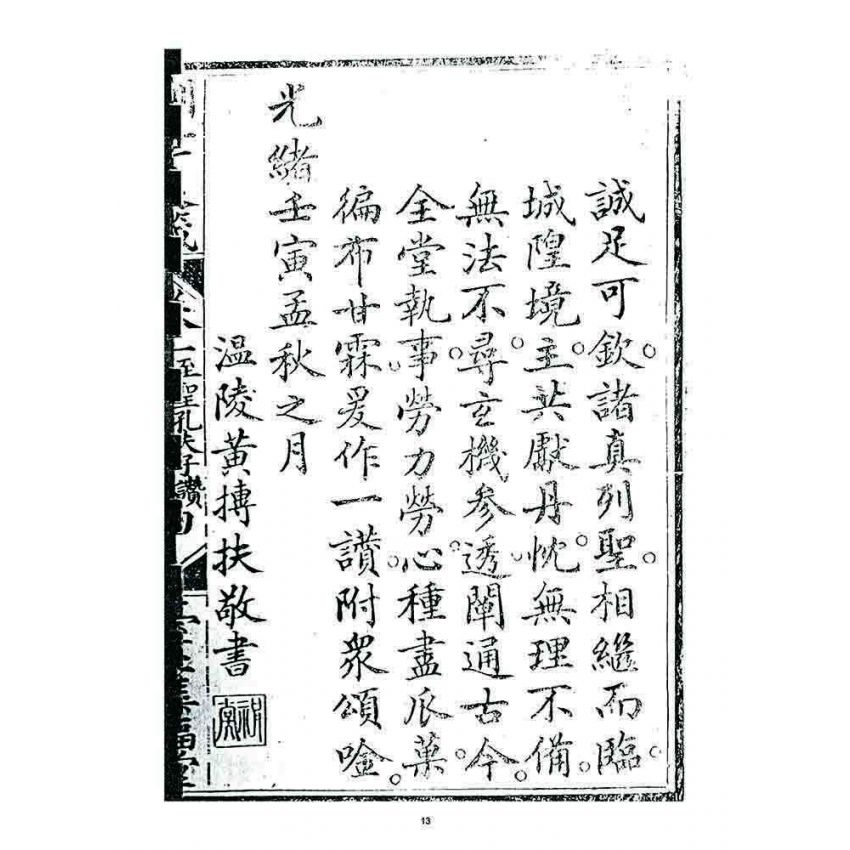 誠足可欽。諸真列聖。相繼而臨。
城隍境主。共獻丹忱。無理不備。
無法不尋。玄機參透。闡通古今。
全堂執事。勞力勞心。種盡瓜菓。
徧布甘霖。爰作一讚。附衆頌唫。
光緒壬寅孟秋之月
温陵黃搏扶敬書
至聖孔夫子讚
13